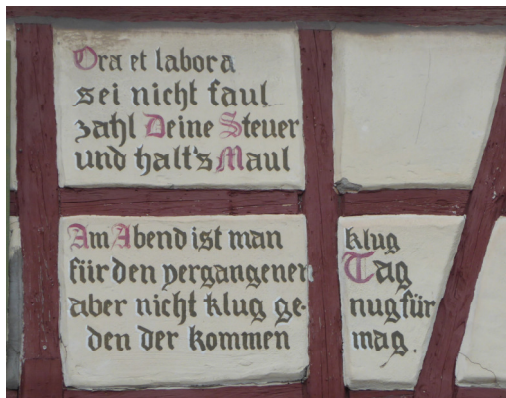 Ora et labora
sei nicht faul
zahl Deine Steuer
und halt's Maul
Am Abend ist man klug
für den vergangenen Tag
aber nicht klug ge- nug für
den der kommen mag.